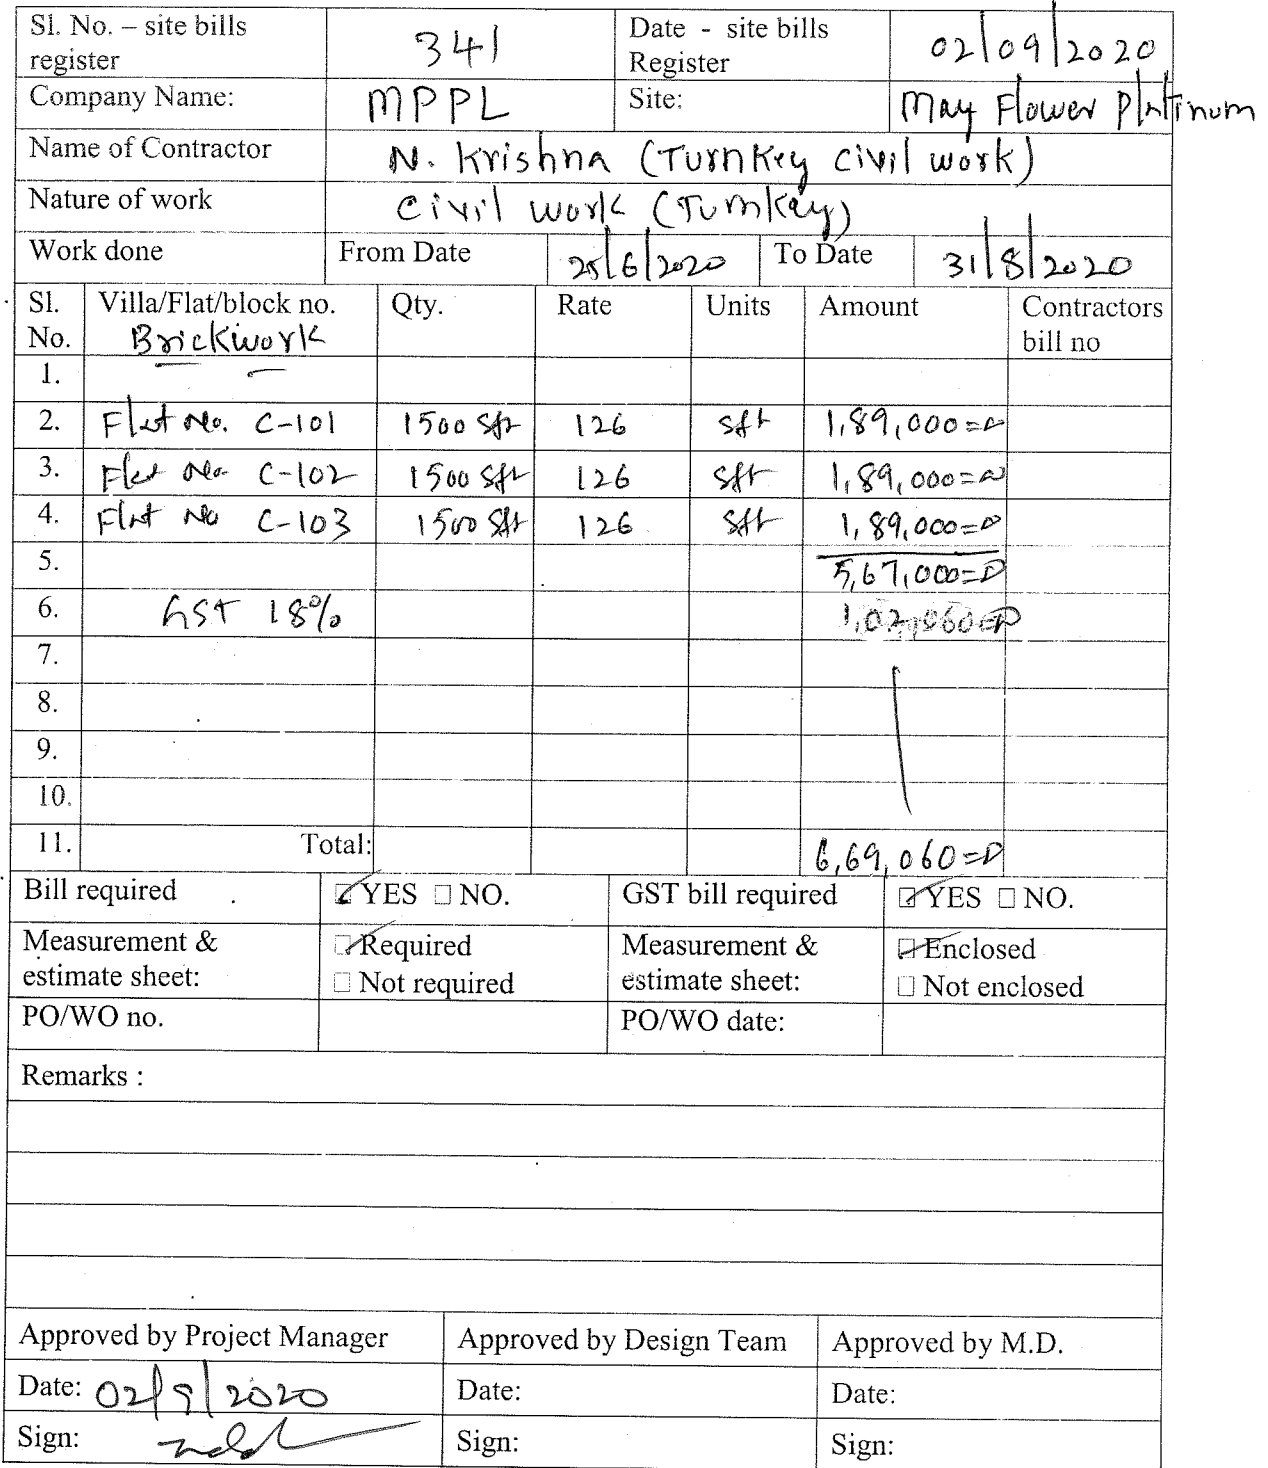 Sl. No. – site bills register 341 Date - site bills Register 02/09/2020
Company Name: MPPL Site: May Flower Platinum
Name of Contractor N. Krishna (Turnkey civil work)
Nature of work Civil work (Turnkey)
Work done From Date 25/6/2020 To Date 31/8/2020
Sl. No. Villa/Flat/block no. Brickwork Qty. Rate Units Amount Contractors bill no
1.
2. Flat No. C-101 1500 Sft 126 Sft 1,89,000=00
3. Flat No C-102 1500 Sft 126 Sft 1,89,000=00
4. Flat No C-103 1500 Sft 126 Sft 1,89,000=00
5. 5,67,000=00
6. GST 18% 1,02,060=00
7.
8.
9.
10.
11. Total: 6,69,060=00
Bill required ☑ YES ☐ NO. GST bill required ☑ YES ☐ NO.
Measurement & estimate sheet: ☑ Required ☐ Not required Measurement & estimate sheet: ☑ Enclosed ☐ Not enclosed
PO/WO no. PO/WO date:
Remarks :
Approved by Project Manager Approved by Design Team Approved by M.D.
Date: 02/9/2020 Date: Date:
Sign: Sign: Sign: